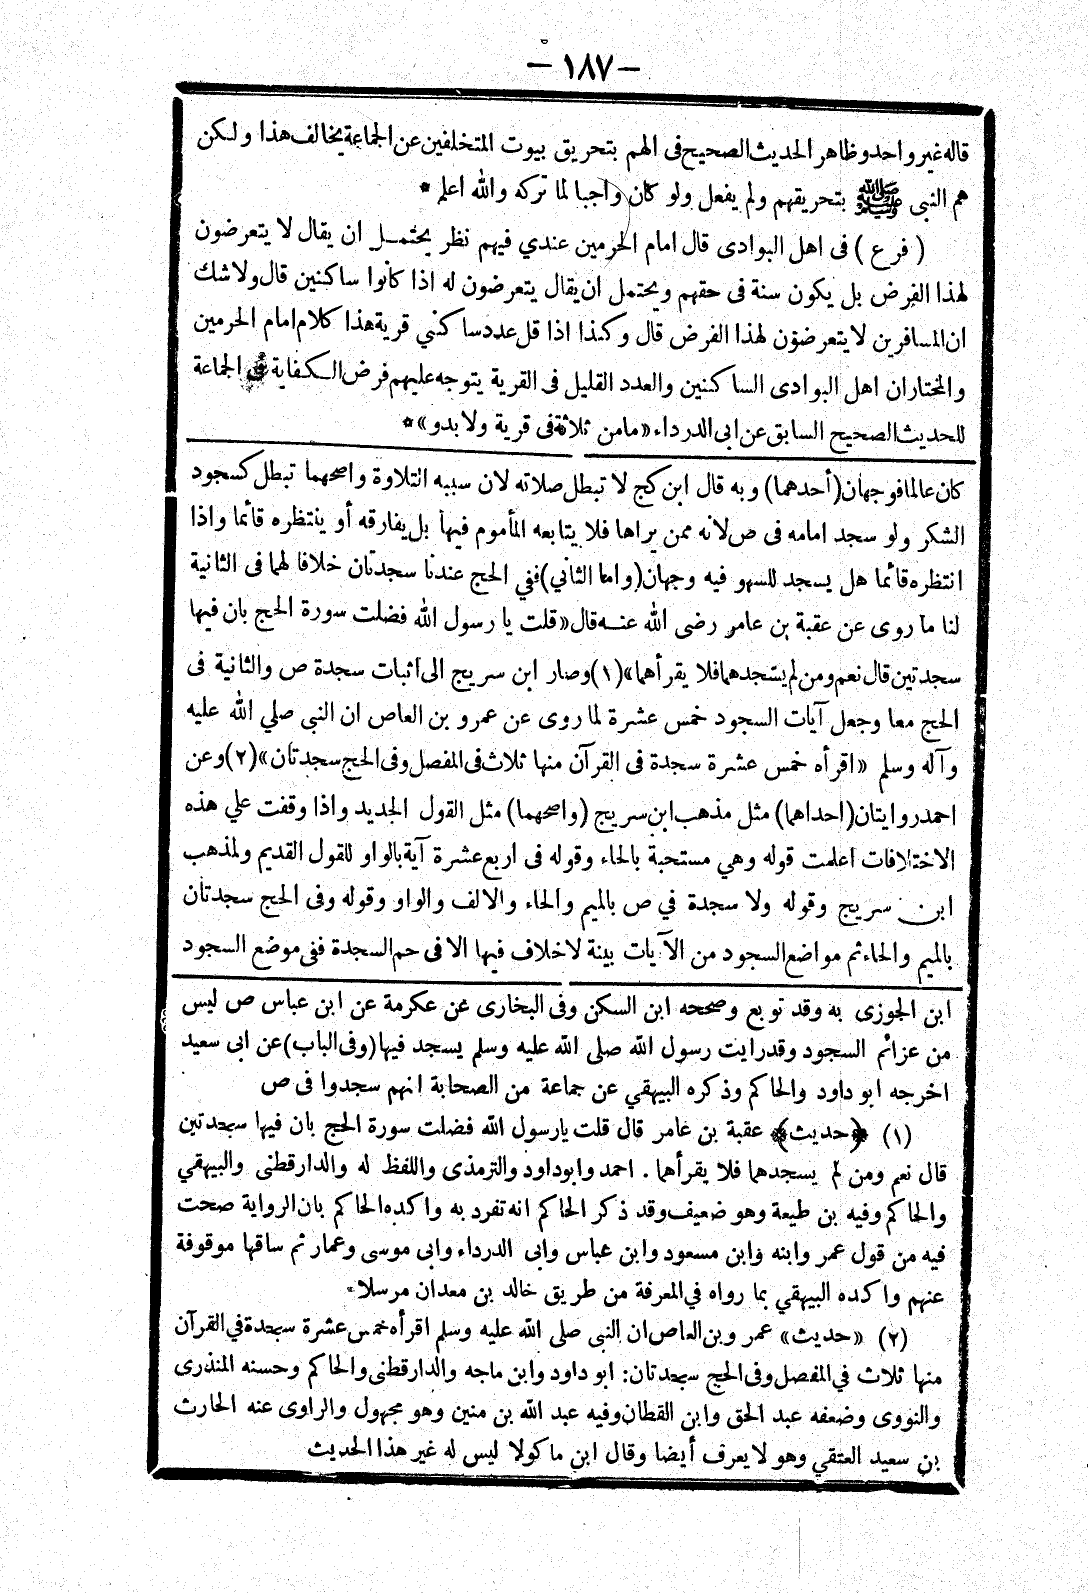 - ١٨٧ -
قاله غير واحد وظاهر الحديث الصحيح فى الهم بتحريق بيوت المتخلفين عن الجماعة يخالف هذا ولكن
هم النبى ﷺ بتحريقهم ولم يفعل ولو كان واجبا لما تركه والله اعلم *
( فرع ) فى اهل البوادى قال امام الحرمين عندي فيهم نظر يحتمل ان يقال لا يتعرضون
لهذا الفرض بل يكون سنة فى حقهم ويحتمل ان يقال يتعرضون له اذا كانوا ساكنين قال ولا شك
ان المسافرين لا يتعرضون لهذا الفرض قال وكذا اذا قل عدد ساكني قرية هذا كلام امام الحرمين
والمختار ان اهل البوادى الساكنين والعدد القليل فى القرية يتوجه عليهم فرض الكفاية فى الجماعة
للحديث الصحيح السابق عن ابى الدرداء «ما من ثلاثة فى قرية ولا بدو» *
كان عالما فوجهان (أحدهما) وبه قال ابن كج لا تبطل صلاته لان سببه التلاوة واصحهما تبطل كسجود
الشكر ولو سجد امامه فى ص لانه ممن يراها فلا يتابعه المأموم فيها بل يفارقه أو ينتظره قائما واذا
انتظره قائما هل يسجد للسهو فيه وجهان (واما الثاني) ففي الحج عندنا سجدتان خلافا لهما فى الثانية
لنا ما روى عن عقبة بن عامر رضى الله عنه قال «قلت يا رسول الله فضلت سورة الحج بان فيها
سجدتين قال نعم ومن لم يسجدهما فلا يقرأهما» (١) وصار ابن سريج الى اثبات سجدة ص والثانية فى
الحج معا وجعل آيات السجود خمس عشرة لما روى عن عمرو بن العاص ان النبى صلي الله عليه
وآله وسلم «اقرأه خمس عشرة سجدة فى القرآن منها ثلاث فى المفصل وفى الحج سجدتان» (٢) وعن
احمد روايتان (احداهما) مثل مذهب ابن سريج (واصحهما) مثل القول الجديد واذا وقفت علي هذه
الاختلافات اعلمت قوله وهي مستحبة بالحاء وقوله فى اربع عشرة آية بالواو للقول القديم ولمذهب
ابن سريج وقوله ولا سجدة في ص بالميم والحاء والالف والواو وقوله وفى الحج سجدتان
بالميم والحاء ثم مواضع السجود من الآيات بينة لا خلاف فيها الا فى حم السجدة ففى موضع السجود
ابن الجوزى به وقد توبع وصححه ابن السكن وفى البخارى عن عكرمة عن ابن عباس ص ليس
من عزائم السجود وقد رايت رسول الله صلى الله عليه وسلم يسجد فيها (وفى الباب) عن ابى سعيد
اخرجه ابو داود والحاكم وذكره البيهقي عن جماعة من الصحابة انهم سجدوا فى ص
(١) ﴿حديث﴾ عقبة بن عامر قال قلت يارسول الله فضلت سورة الحج بان فيها سجدتين
قال نعم ومن لم يسجدهما فلا يقرأهما . احمد وابوداود والترمذى واللفظ له والدارقطنى والبيهقي
والحاكم وفيه بن طيعة وهو ضعيف وقد ذكر الحاكم انه تفرد به واكده الحاكم بان الرواية صحت
فيه من قول عمر وابنه وابن مسعود وابن عباس وابى الدرداء وابى موسى وعمار ثم ساقها موقوفة
عنهم واكده البيهقي بما رواه في المعرفة من طريق خالد بن معدان مرسلا
(٢) «حديث» عمر وبن العاص ان النبى صلى الله عليه وسلم اقرأه خمس عشرة سجدة في القرآن
منها ثلاث في المفصل وفى الحج سجدتان: ابو داود وابن ماجه والدارقطنى والحاكم وحسنه المنذرى
والنووى وضعفه عبد الحق وابن القطان وفيه عبد الله بن منين وهو مجهول والراوى عنه الحارث
بن سعيد العتقي وهو لا يعرف أيضا وقال ابن ماكولا ليس له غير هذا الحديث